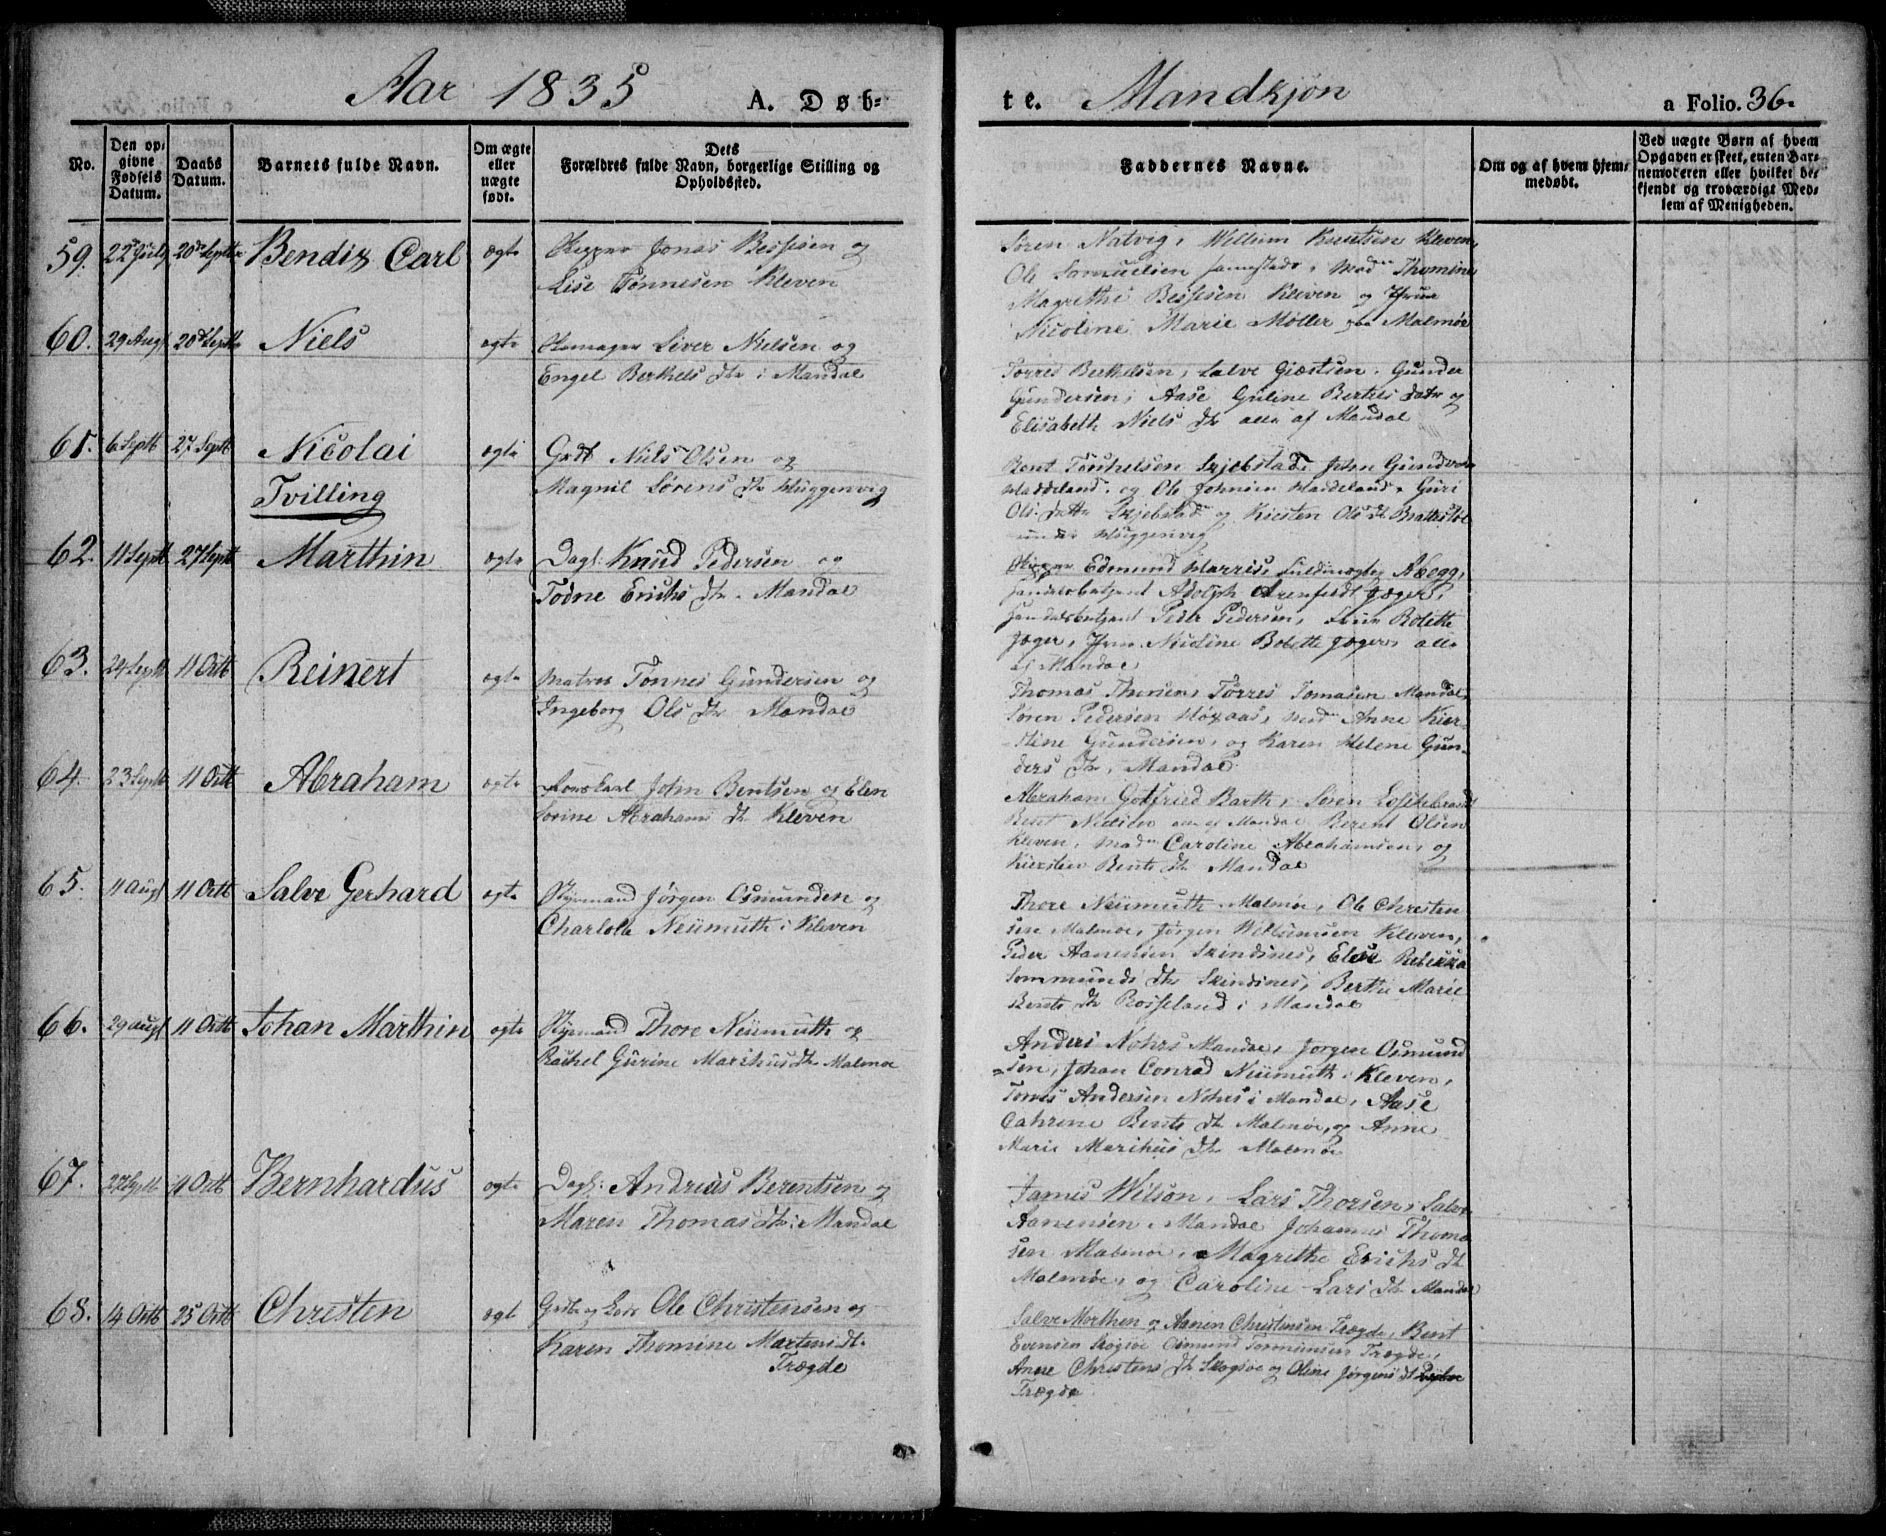 Aar 1835 A. Døb-
te. Mandkjøn a Folio. 36.
No.
Den op-
givne
Fødsels
Datum.
Daabs
Datum.
Barnets fulde Navn.
Om ægte
eller
uægte
født.
Dets
Forældres fulde Navn, borgerlige Stilling og
Opholdssted.
Faddernes Navne.
Om og af hvem hjem-
medøbt.
Ved uægte Børn af hvem
Opgaven er skeet, enten Bar-
nemoderen eller hvilket be-
kjendt og troværdigt Med-
lem af Menigheden.
59. 22 July 20de Septbr Bendix Carl ægte Skipper Jonas Bessesen og
Lise Tønnesen Kleven
Søren Natvig, Willum Knutsen Kleven,
Ole Samuelsen sammestads, Mad Thomine
Magrethe Bessesen Kleven og Jfrue
Nicoline Marie Møller paa Malmøe
60. 29 Aug 20de Septbr Niels ægte Siver Nielsen og
Engel Berthels Dtr i Mandal
Torres Berthelsen, Salve Giertsen, Gunder
Gundersen, Aase Guline Bertels Datr og
Elisabeth Niels Dtr alle af Mandal
61. 6 Septb 27 Septb Nicolai
Tvilling
ægte Grdb Niels Olsen og
Magnil Sørens Dtr Huggenvig
Bent Skjebstad, John Gundvor
Haddeland, og Ole Johnsen Haddeland, Guri
Ols Datter Skjebstad og Kirsten Ols Dt
under Huggenvig
62. 11 Septb 27 Septb Marthin ægte Dagl: Knud Pedersen og
Todne Erichs Dtr. Mandal
Skipper Edmund Harris, Aaegg,
Handelsbetjent Adolph Arenfeldt Jæger,
Handelsbetjent Peder Pedersen, Bolette
Jæger, Jfrue Nicoline Bolette Jæger, alle
i Mandal
63. 24 Septb 11 Octb Reinert ægte Matros Tønnes Gundersen og
Ingeborg Ols Dtr Mandal
Thomas Thorsen, Tørres Tomasen Mandal,
Søren Pedersen Høxaas, Mad Anne Kier-
stine Gundersen, og Karen Helene Gun-
ders Dtr, Mandal
64. 23 Septb 11 Octb Abraham ægte John Bentsen og Elen
Sorine Abrahams Dtr Kleven
Abraham Gotfried Barth, Søren
Bent Nielsen alle af Mandal Berent Olsen
Kleven, Mad Caroline Abrahamsen, og
Kiersten Bents Dtr Mandal
65. 11 Aug 11 Octb Salve Gerhard ægte Styrmand Jørgen Osmundsen og
Charlota Neümuth i Kleven
Thore Neümuth Malmøe, Ole Christen
sen Malmøe, Jørgen Willumsen Kleven,
Peder Aanensen Skindsnes, Elese Rebekka
Sommunds Dtr Skindsnes, Berthe Marie
Bents Dtr Rosseland i Mandal
66. 29 Aug 11 Octb Johan Marthin ægte Styrmand Thore Neümuth og
Rachel Gurine Marchus Dtr Malmøe
Anders Nohrs Mandal, Jørgen Osmund
sen, Johan Conrad Neümuth i Kleven,
Tomas Andersen Nohrs i Mandal, Aase
Cahrine Bents Dtr Malmøe, og Anne
Marie Marchus Dtr Malmøe
67. 27 Septb 11 Octb Bernhardus ægte Dagl: Andreas Berentsen og
Maren Thomas Dtr i Mandal
James Wilson, Lars Thorsen, Salve
Aanensen Mandal Johannes Thoma
sen Malmøe, Magrethe Erichs Dt
Malmøe, og Caroline Lars Dtr Mandal
68. 14 Octb 25 Octb Christen ægte Grdb og Lods Ole Christensen og
Karen Thomine Martens Dt.
Trægde
Salve Morthen og Aanen Christensen Trægde, Bent
Evensen Skogsøe Osmund Tormundsen Trægde,
Anne Christens Dtr Skogsøe og Oline Jørgens Dt
Trægde